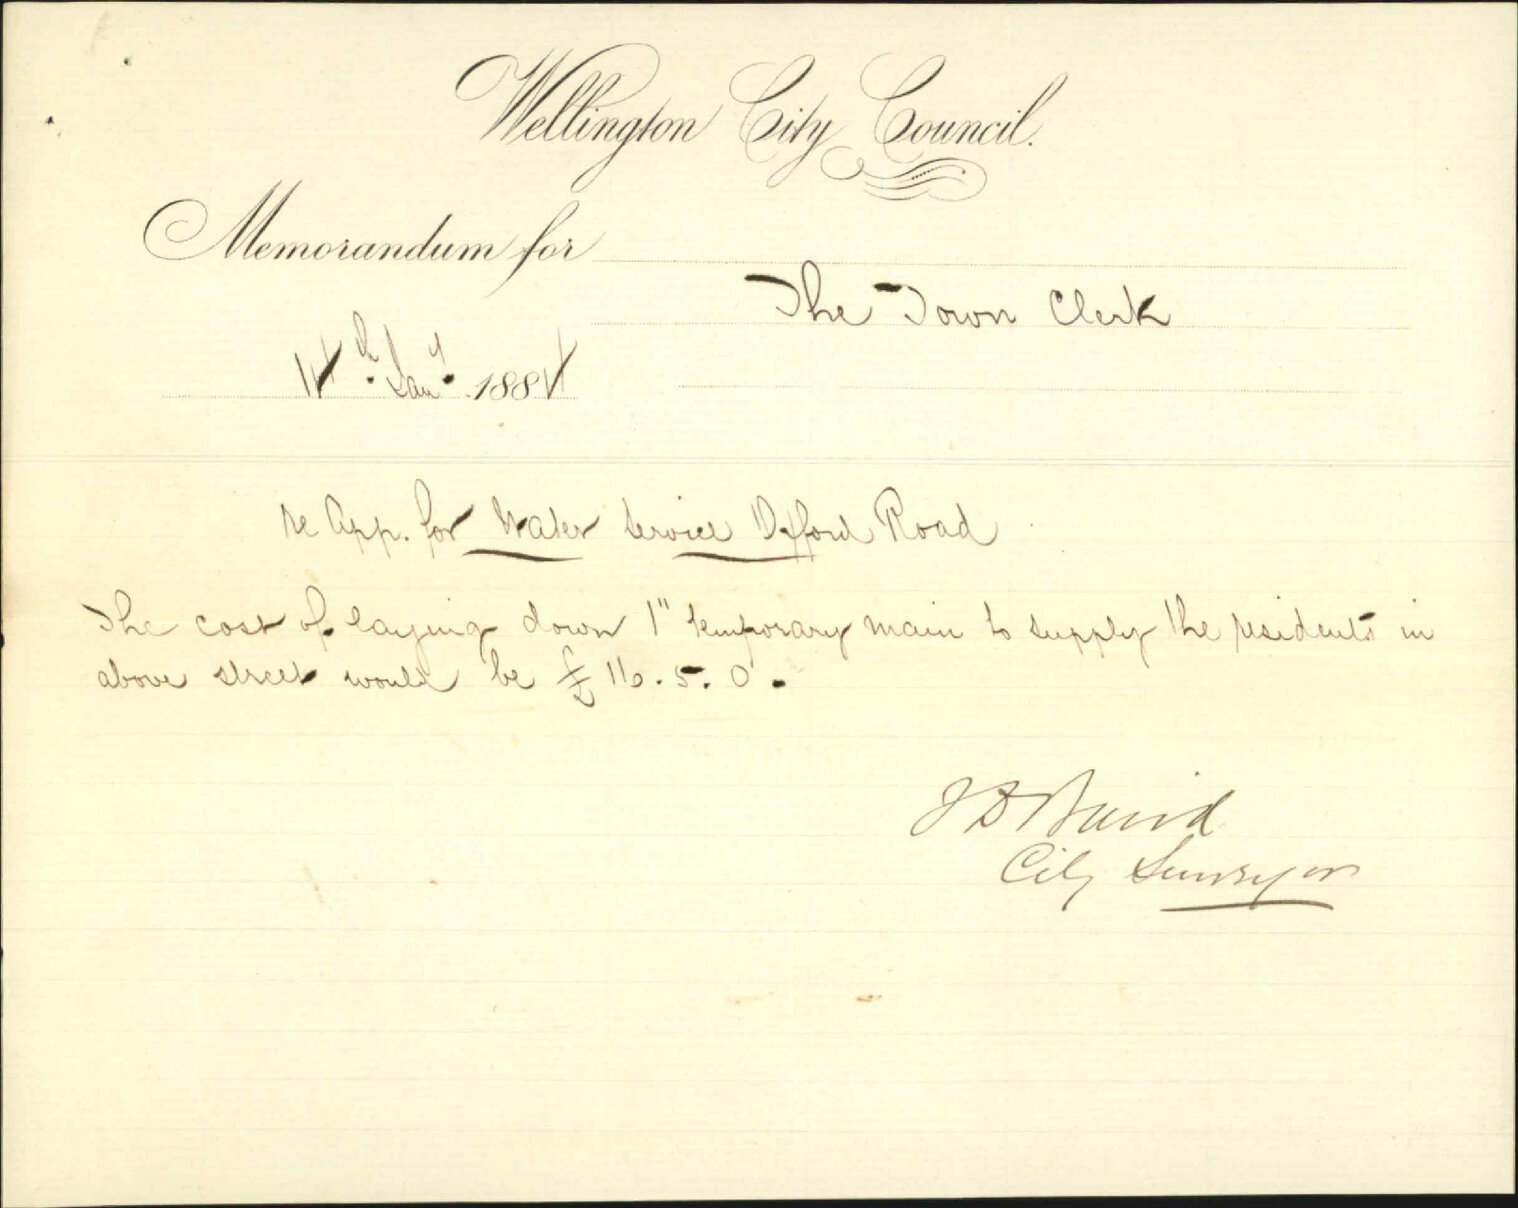 Wellington City Council.
Memorandum for
The Town Clerk
14th Jany. 1884
re App. for Water Service Offord Road
The cost of laying down 1" temporary main to supply the residents in
above street would be £16.5.0.
J D Baird
City Surveyor